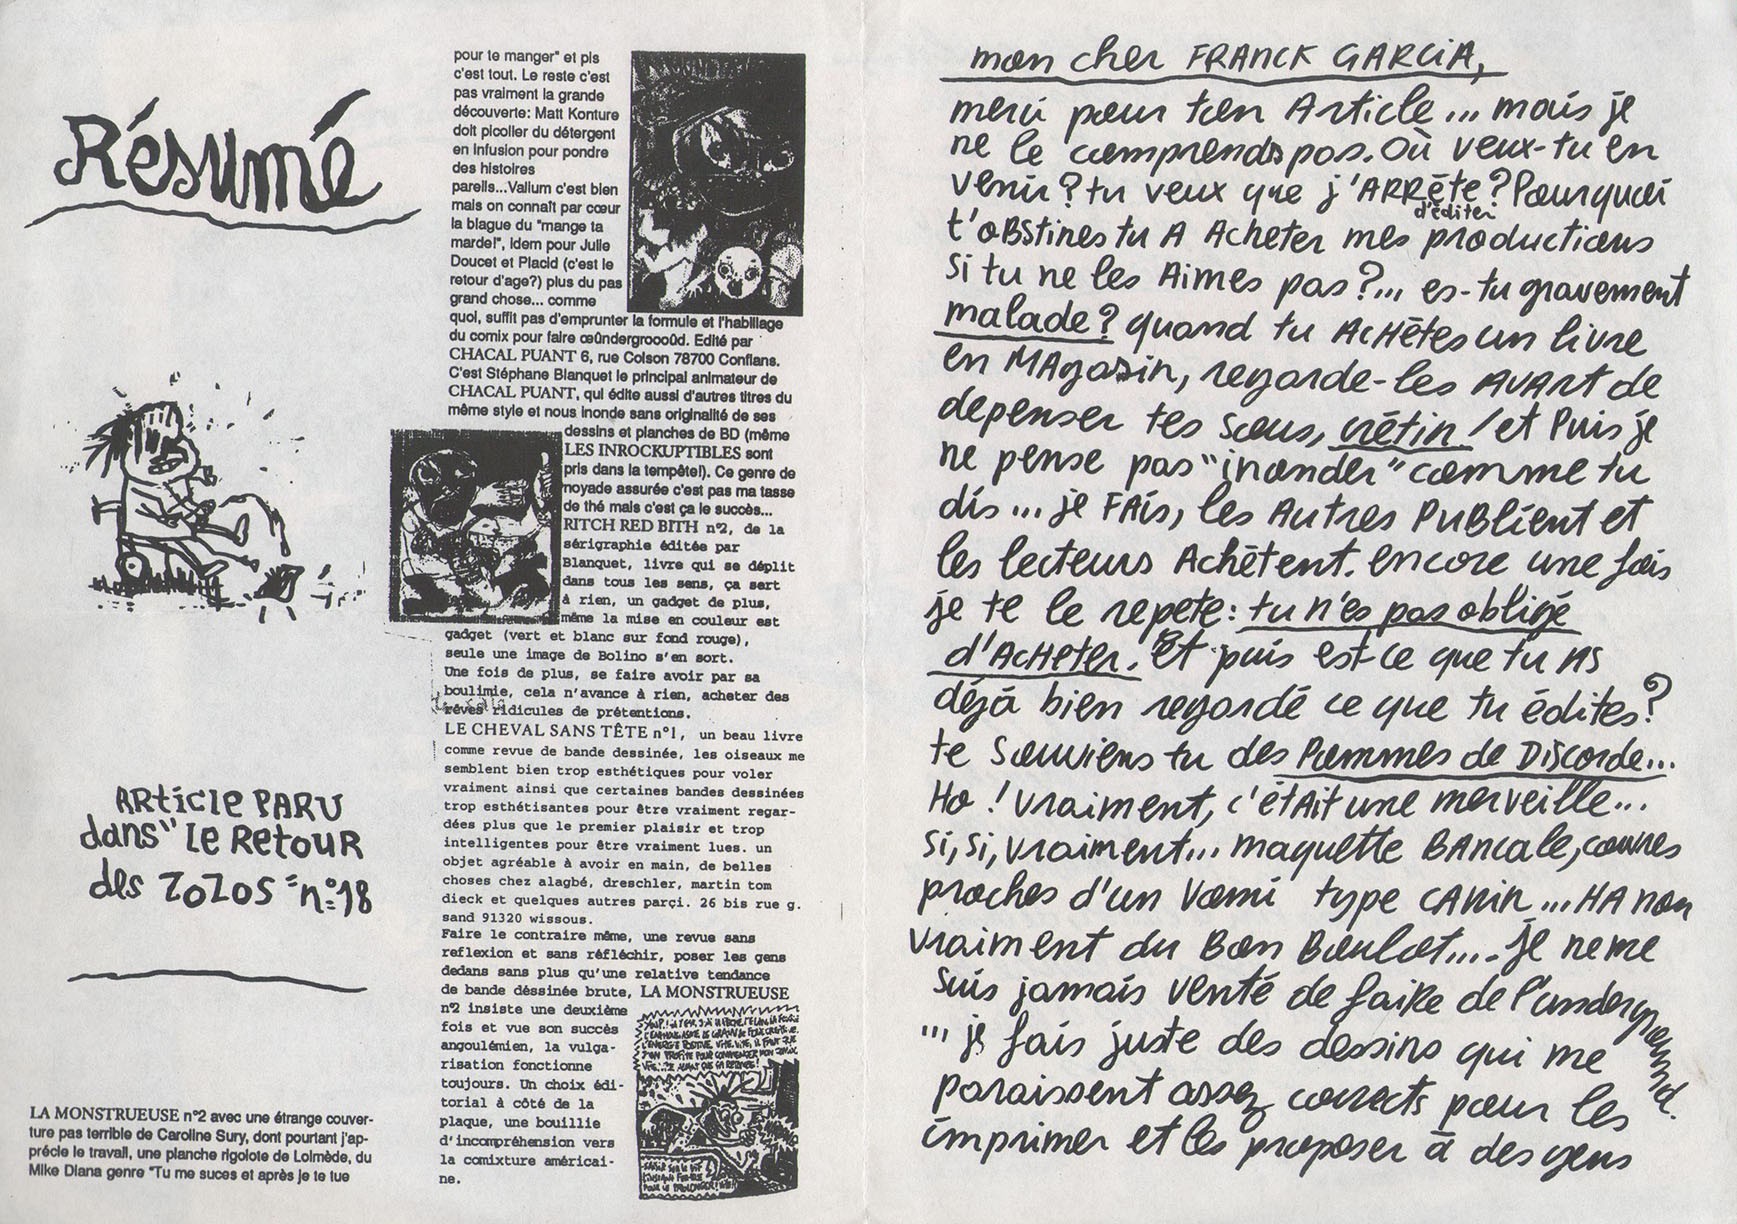 Résumé
ARticle PARU
dans "Le Retour
des ZOZOS" n°18
LA MONSTRUEUSE n°2 avec une étrange couver-
ture pas terrible de Caroline Sury, dont pourtant j'ap-
précie le travail, une planche rigolote de Lolmède, du
Mike Diana genre "Tu me suces et après je te tue
pour te manger" et pis
c'est tout. Le reste c'est
pas vraiment la grande
découverte: Matt Konture
doit picoller du détergent
en infusion pour pondre
des histoires
pareils...Valium c'est bien
mais on connaît par cœur
la blague du "mange ta
marde!", idem pour Julie
Doucet et Placid (c'est le
retour d'age?) plus du pas
grand chose... comme
quoi, suffit pas d'emprunter la formule et l'habillage
du comix pour faire œûndergroooûd. Edité par
CHACAL PUANT 6, rue Colson 78700 Conflans.
C'est Stéphane Blanquet le principal animateur de
CHACAL PUANT, qui édite aussi d'autres titres du
même style et nous inonde sans originalité de ses
dessins et planches de BD (même
LES INROCKUPTIBLES sont
pris dans la tempête!). Ce genre de
noyade assurée c'est pas ma tasse
de thé mais c'est ça le succès...
RITCH RED BITH n°2, de la
sérigraphie éditée par
Blanquet, livre qui se déplit
dans tous les sens, ça sert
à rien, un gadget de plus,
même la mise en couleur est
gadget (vert et blanc sur fond rouge),
seule une image de Bolino s'en sort.
Une fois de plus, se faire avoir par sa
boulimie, cela n'avance à rien, acheter des
rêves ridicules de prétentions.
LE CHEVAL SANS TÊTE n°1, un beau livre
comme revue de bande dessinée, les oiseaux me
semblent bien trop esthétiques pour voler
vraiment ainsi que certaines bandes dessinées
trop esthétisantes pour être vraiment regar-
dées plus que le premier plaisir et trop
intelligentes pour être vraiment lues. un
objet agréable à avoir en main, de belles
choses chez alagbé, dreschler, martin tom
dieck et quelques autres parçi. 26 bis rue g.
sand 91320 wissous.
Faire le contraire même, une revue sans
reflexion et sans réfléchir, poser les gens
dedans sans plus qu'une relative tendance
de bande déssinée brute, LA MONSTRUEUSE
n°2 insiste une deuxième
fois et vue son succès
angoulémien, la vulga-
risation fonctionne
toujours. Un choix édi-
torial à côté de la
plaque, une bouillie
d'incompréhension vers
la comixture américai-
ne.
mon cher FRANCK GARCIA,
merci pour ton Article... mais je
ne le comprends pas. Où veux-tu en
venir? tu veux que j'ARRête? Pourquoi
d'éditer
t'oBstines tu A Acheter mes productions
si tu ne les Aimes pas?... es-tu gravement
malade? quand tu AcHêtes un livre
en MAgasin, regarde-les AVANT de
depenser tes sous, crétin! et Puis je
ne pense pas "inonder" comme tu
dis... je FAis, les Autres PuBlient et
les lecteurs Achêtent. encore une fois
je te le repete: tu n'es pas obligé
d'AcHeter. Et puis est-ce que tu AS
déjà bien regardé ce que tu édites?
te souviens tu des Pommes de DiScorde...
Ho! vraiment, c'étAit une merveille...
si, si, vraiment... maquette BAncale, couvres
proches d'un Vomi type CANin... HA non
vraiment du Bon Boulot.... Je ne me
suis jamais venté de faiRe de l'underground.
... je fais juste des dessins qui me
paraissent assez corrects pour les
imprimer et les proposer à des gens